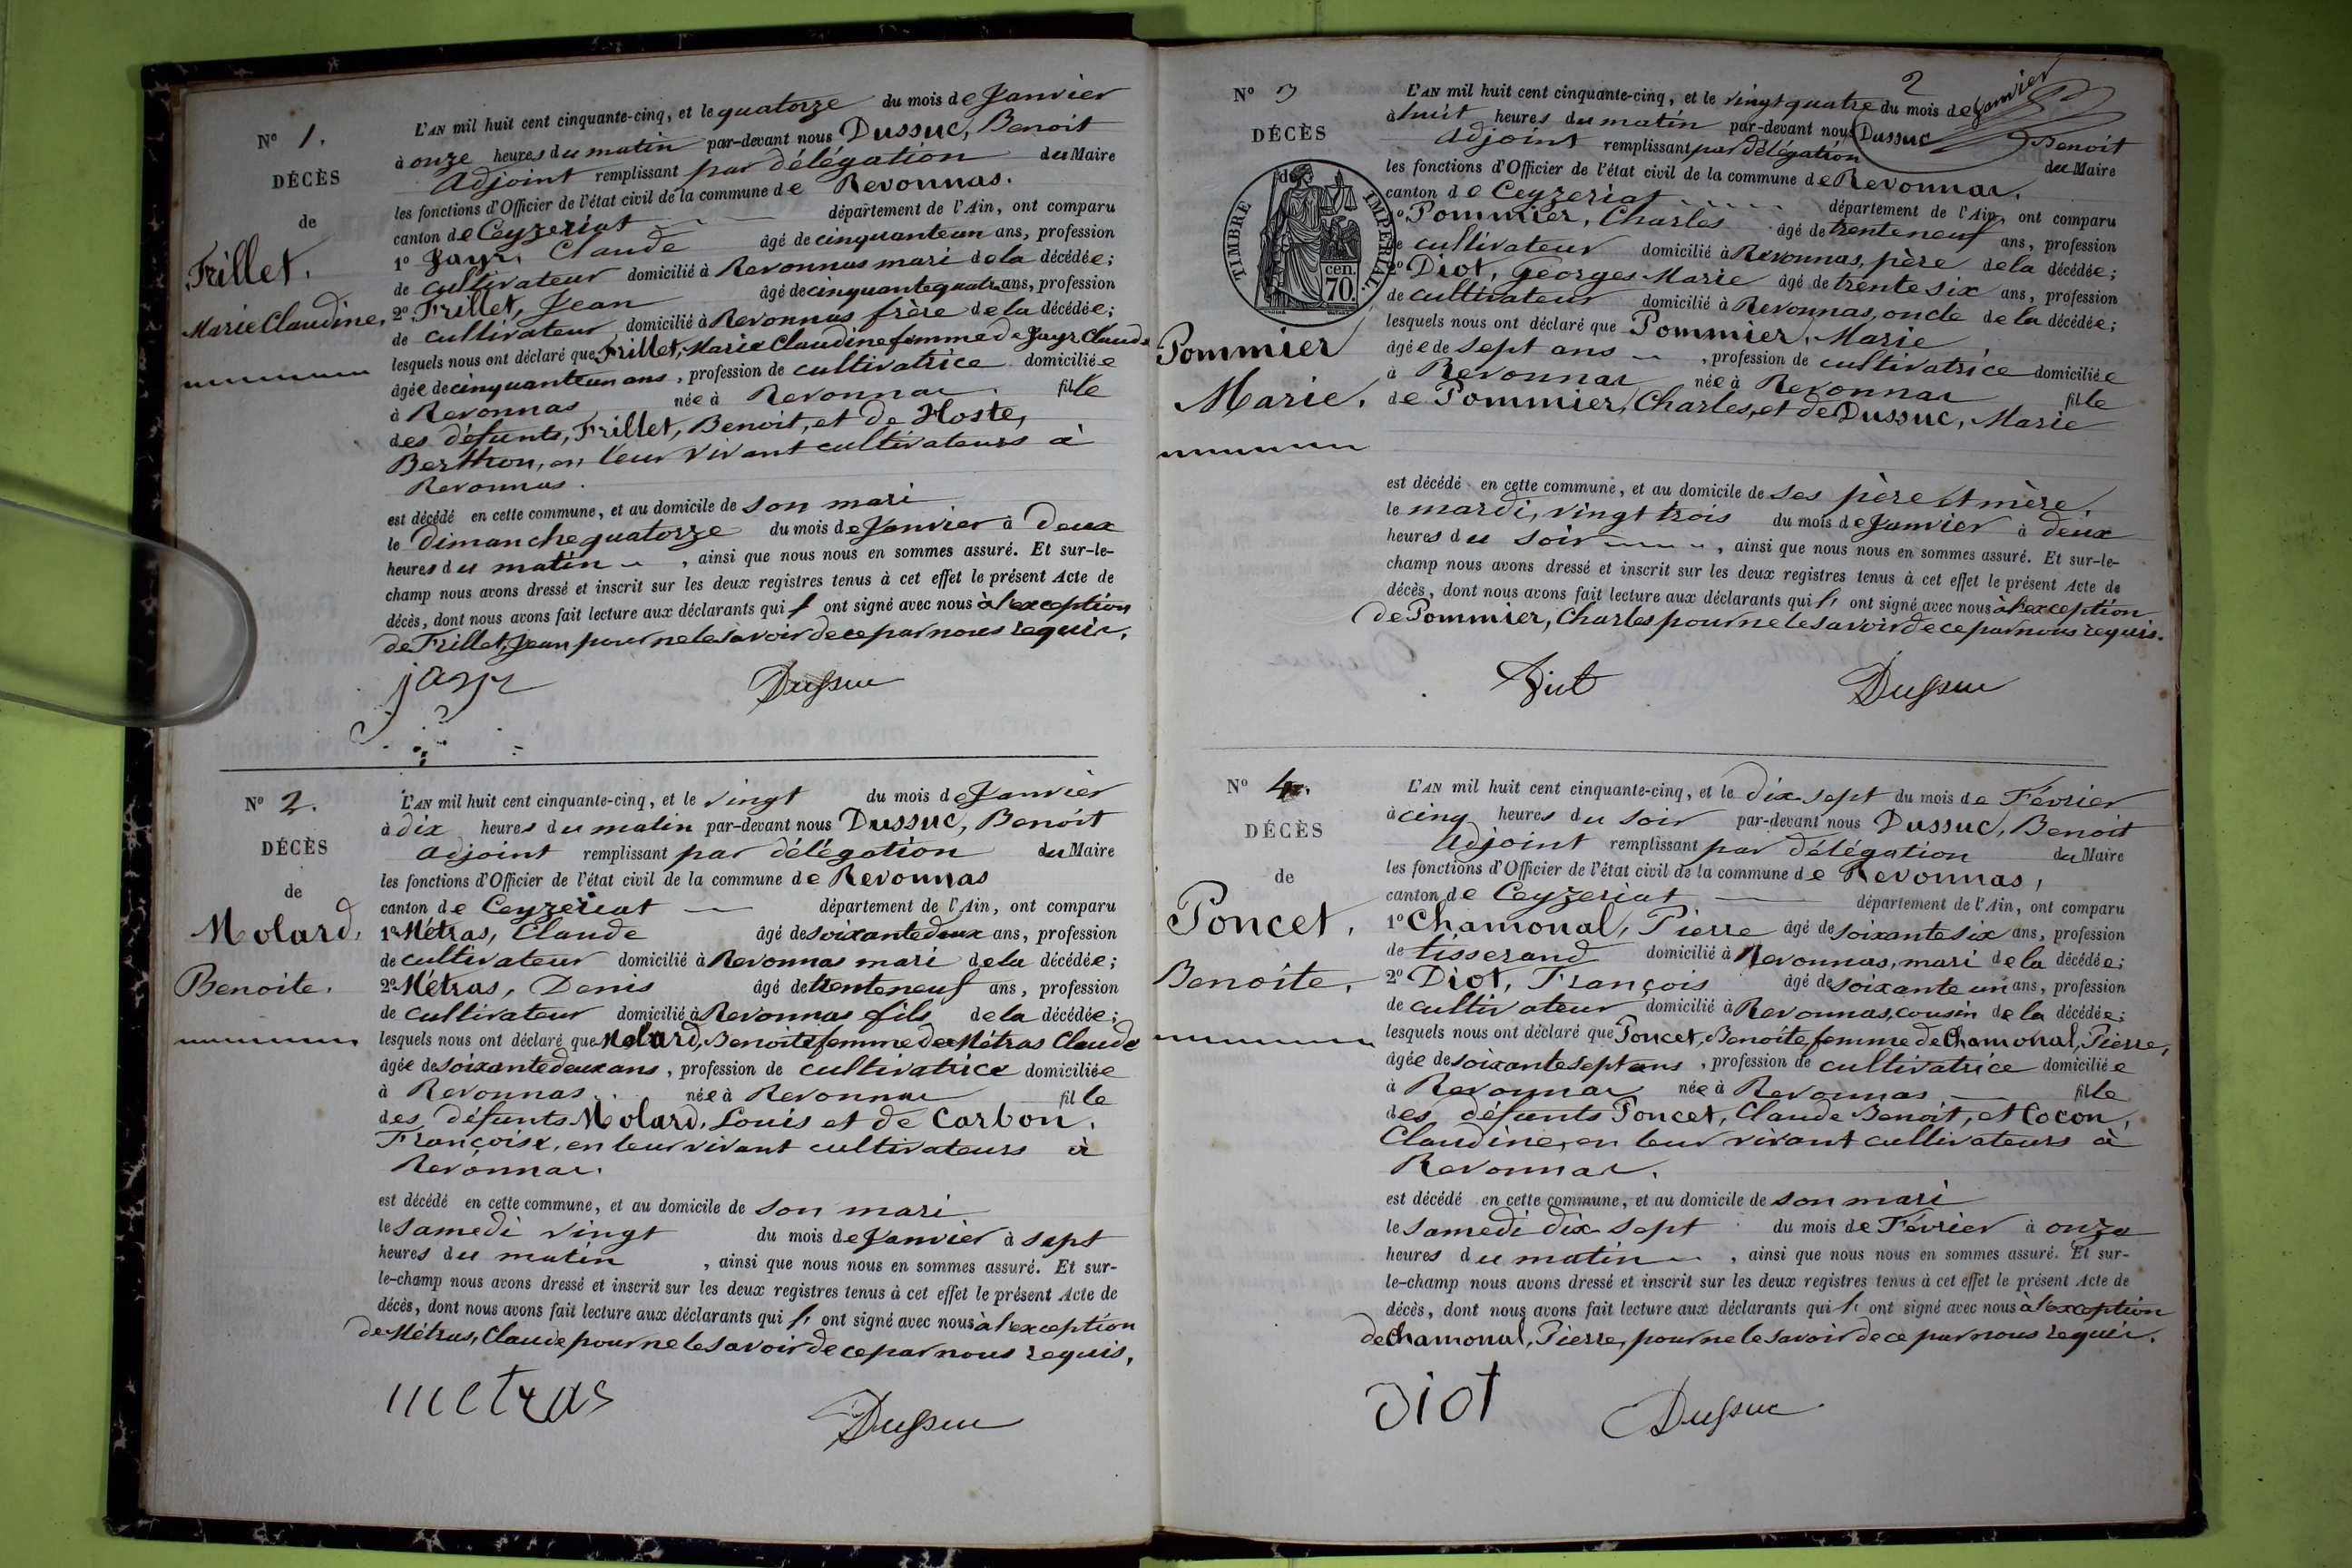 N° 1.
DÉCÈS
de
Frillet,
Marie Claudine,
L'AN mil huit cent cinquante-cinq, et le quatorze du mois de Janvier
à onze heures du matin par-devant nous Dussuc, Benoit
Adjoint remplissant par délégation du Maire
les fonctions d'Officier de l'état civil de la commune de Revonnas.
canton de Ceyzeriat département de l'Ain, ont comparu
1° Jayr, Claude âgé de cinquante un ans, profession
de cultivateur domicilié à Revonnas mari de la décédée;
2° Frillet, Jean âgé de cinquante quatre ans, profession
de cultivateur domicilié à Revonnas frère de la décédée;
lesquels nous ont déclaré que Frillet, Marie Claudine femme de Jayr Claude
âgée de cinquante un ans, profession de cultivatrice domiciliée
à Revonnas née à Revonnas fille
des défunts, Frillet, Benoit, et de Hoste,
Berthon, en leur vivant cultivateurs à
Revonnas.
est décédé en cette commune, et au domicile de son mari
le Dimanche quatorze du mois de Janvier à deux
heures du matin, ainsi que nous nous en sommes assuré. Et sur-le-
champ nous avons dressé et inscrit sur les deux registres tenus à cet effet le présent Acte de
décès, dont nous avons fait lecture aux déclarants qui l' ont signé avec nous à l'exception
de Frillet, Jean pour ne le savoir de ce par nous requis.
jayr Dussuc
N° 2.
DÉCÈS
de
Molard,
Benoite.
L'AN mil huit cent cinquante-cinq, et le vingt du mois de Janvier
à dix heures du matin par-devant nous Dussuc, Benoit
Adjoint remplissant par délégation du Maire
les fonctions d'Officier de l'état civil de la commune de Revonnas
canton de Ceyzeriat département de l'Ain, ont comparu
1° Métras, Claude âgé de soixante deux ans, profession
de cultivateur domicilié à Revonnas mari de la décédée;
2° Métras, Denis âgé de trente neuf ans, profession
de cultivateur domicilié à Revonnas fils de la décédée;
lesquels nous ont déclaré que Molard, Benoite femme de Métras Claude
âgée de soixante deux ans, profession de cultivatrice domiciliée
à Revonnas née à Revonnas fille
des défunts Molard, Louis et de Carbon,
Françoise, en leur vivant cultivateurs à
Revonnas.
est décédé en cette commune, et au domicile de son mari
le samedi vingt du mois de Janvier à sept
heures du matin, ainsi que nous nous en sommes assuré. Et sur-
le-champ nous avons dressé et inscrit sur les deux registres tenus à cet effet le présent Acte de
décès, dont nous avons fait lecture aux déclarants qui l' ont signé avec nous à l'exception
de Métras, Claude pour ne le savoir de ce par nous requis,
metras Dussuc
2
N° 3
DÉCÈS
de
TIMBRE IMPÉRIAL
cen.
70.
Pommier
Marie.
L'AN mil huit cent cinquante-cinq, et le vingt quatre du mois de Janvier
à huit heures du matin par-devant nous Dussuc Benoit
Adjoint remplissant par délégation du Maire
les fonctions d'Officier de l'état civil de la commune de Revonnas.
canton de Ceyzeriat département de l'Ain, ont comparu
1° Pommier, Charles âgé de trente neuf ans, profession
de cultivateur domicilié à Revonnas, père de la décédée;
2° Diot, Georges Marie âgé de trente six ans, profession
de cultivateur domicilié à Revonnas, oncle de la décédée;
lesquels nous ont déclaré que Pommier, Marie
âgée de sept ans, profession de cultivatrice domiciliée
à Revonnas née à Revonnas fille
de Pommier, Charles, et de Dussuc, Marie
est décédé en cette commune, et au domicile de ses père et mère.
le mardi, vingt trois du mois de Janvier à deux
heures du soir, ainsi que nous nous en sommes assuré. Et sur-le-
champ nous avons dressé et inscrit sur les deux registres tenus à cet effet le présent Acte de
décès, dont nous avons fait lecture aux déclarants qui l' ont signé avec nous à l'exception
de Pommier, Charles pour ne le savoir de ce par nous requis.
Diot Dussuc
N° 4.
DÉCÈS
de
Poncet,
Benoite,
L'AN mil huit cent cinquante-cinq, et le dix-sept du mois de Février
à cinq heures du soir par-devant nous Dussuc, Benoit
Adjoint remplissant par délégation du Maire
les fonctions d'Officier de l'état civil de la commune de Revonnas,
canton de Ceyzeriat département de l'Ain, ont comparu
1° Chamonal, Pierre âgé de soixante six ans, profession
de tisserand domicilié à Revonnas, mari de la décédée;
2° Diot, François âgé de soixante un ans, profession
de cultivateur domicilié à Revonnas, cousin de la décédée;
lesquels nous ont déclaré que Poncet, Benoite, femme de Chamonal, Pierre,
âgée de soixante sept ans, profession de cultivatrice domiciliée
à Revonnas née à Revonnas fille
des défunts Poncet, Claude Benoit, et Cocon,
Claudine, en leur vivant cultivateurs à
Revonnas.
est décédé en cette commune, et au domicile de son mari
le samedi dix sept du mois de Février à onze
heures du matin, ainsi que nous nous en sommes assuré. Et sur-
le-champ nous avons dressé et inscrit sur les deux registres tenus à cet effet le présent Acte de
décès, dont nous avons fait lecture aux déclarants qui l' ont signé avec nous à l'exception
de Chamonal, Pierre, pour ne le savoir de ce par nous requis.
Diot Dussuc